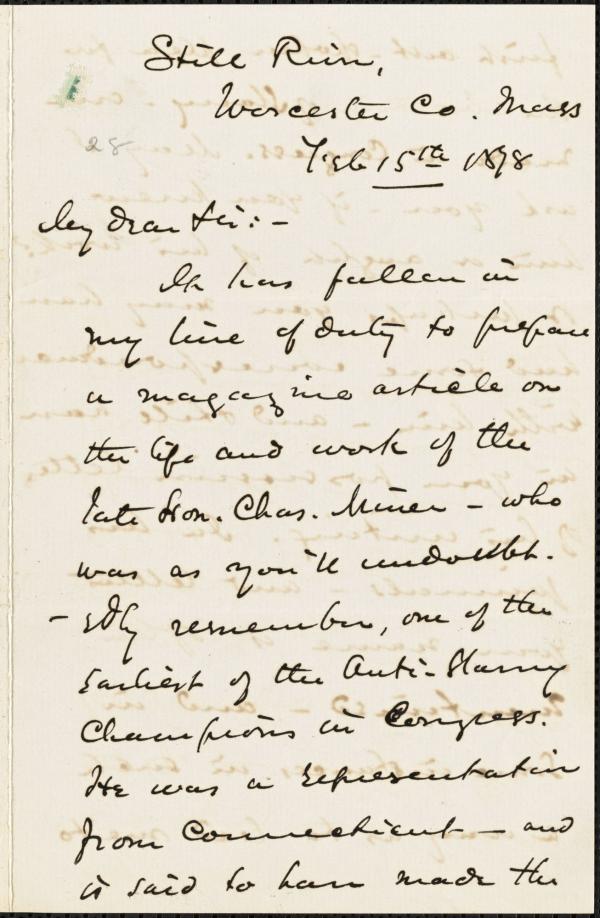 Still River,
Worcester Co. Mass
28
Feb 15th 1878
My dear Sir: -
It has fallen in
my line of duty to prepare
a magazine article on
the life and work of the
late Hon. Chas. Miner - who
was as you'll undoubt-
- edly remember, one of the
earliest of the Anti-Slavery
Champions in Congress.
He was a representative
from Connecticut - and
is said to have made the